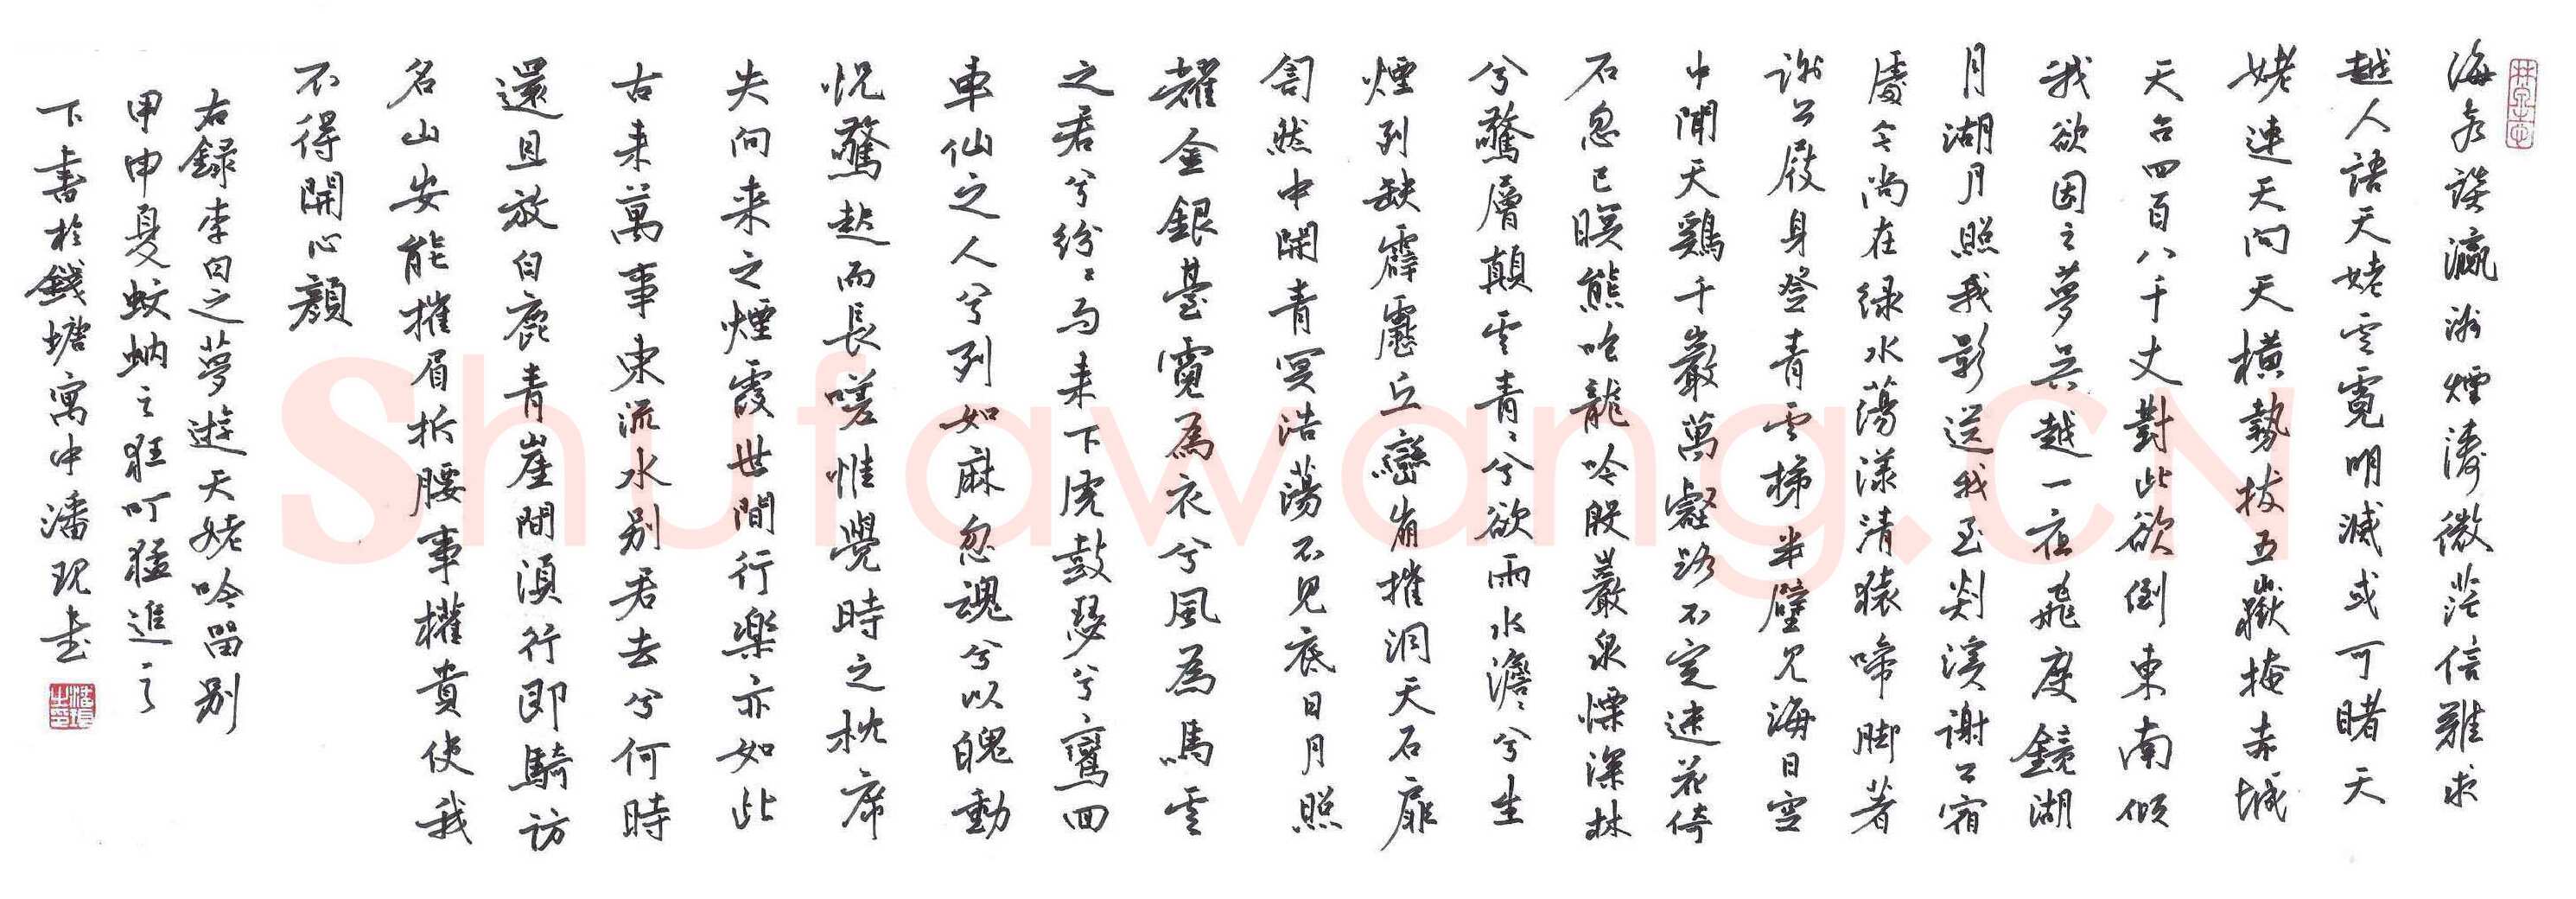 海客談瀛洲煙濤微茫信難求
越人語天姥雲霓明滅或可睹天
姥連天向天橫勢拔五嶽掩赤城
天台四百八千丈對此欲倒東南傾
我欲因之夢吴越一夜飛度鏡湖
月湖月照我影送我至剡溪謝公宿
處今尚在綠水蕩漾清猿啼脚著
謝公屐身登青雲梯半壁見海日空
中聞天鷄千巖萬壑路不定迷花倚
石忽已暝熊咆龍吟殷巖泉慄深林
兮驚層巔雲青〻兮欲雨水澹〻兮生
煙列缺霹靂丘巒崩摧洞天石扉
訇然中開青冥浩蕩不見底日月照
耀金銀臺霓為衣兮風為馬雲
之君兮紛〻而来下虎鼓瑟兮鸞回
車仙之人兮列如麻忽魂兮以魄動
怳驚起而長嗟惟覺時之枕席
失向来之煙霞世間行樂亦如此
古来萬事東流水别君去兮何時
還且放白鹿青崖間須行即騎訪
名山安能摧眉折腰事權貴使我
不得開心顏
右録李白之夢遊天姥吟留别
甲申夏蚊蚋之狂叮猛進之
下書於錢塘寓中潘玘書
Shufawang.CN